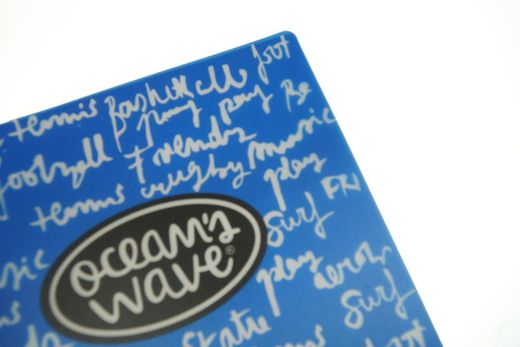 tennis Basketball foot
football ping pong Be
Friends music
tennis rugby play
Surf FRI
ocean's
wave®
play aerob
Surf
Skate
foot